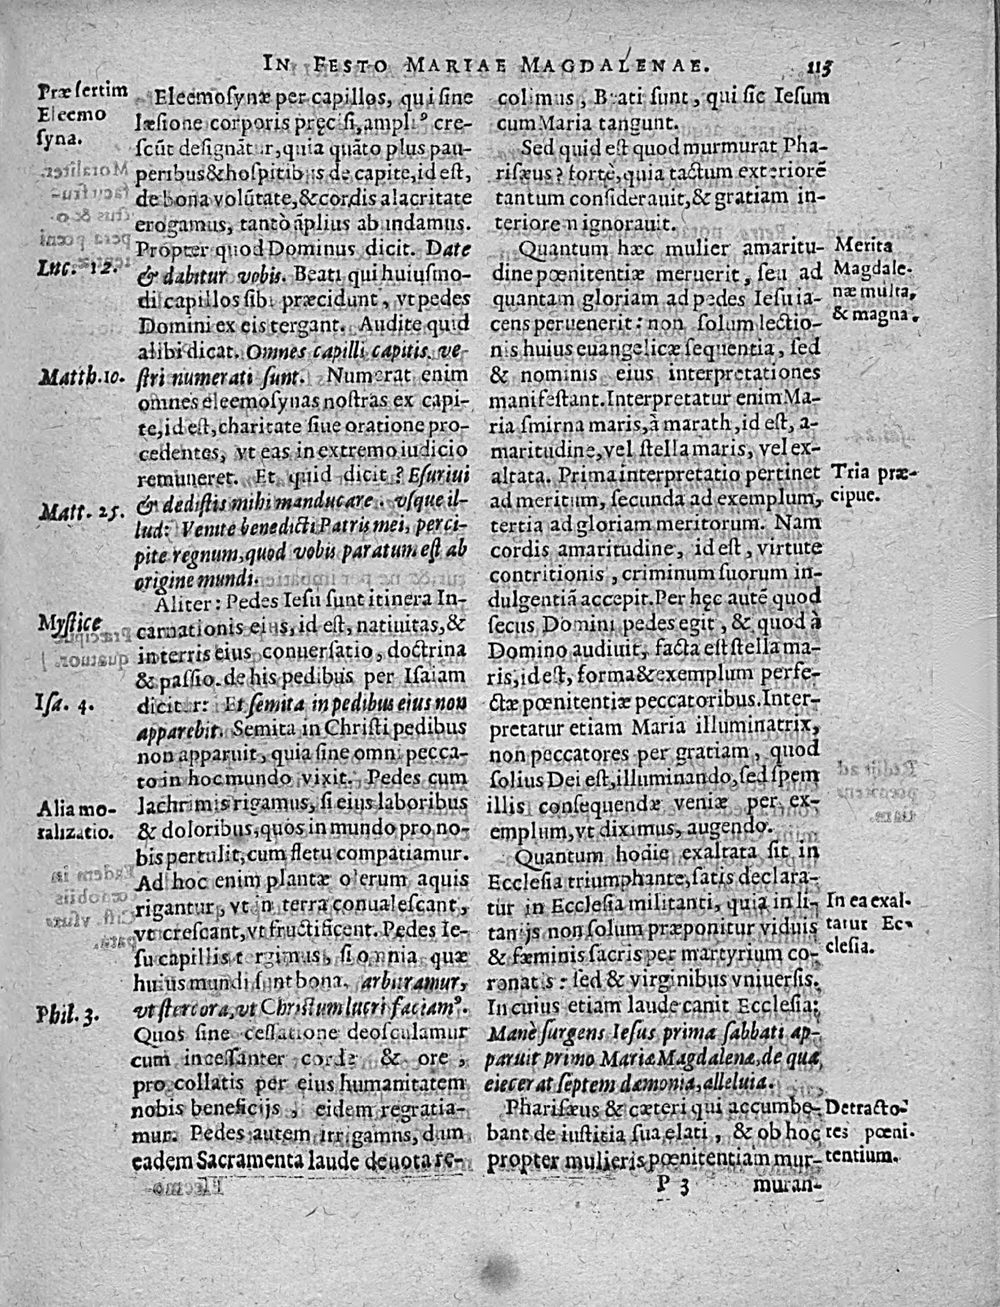 IN FESTO MARIAE MAGDALENAE. 115
Præsertim
Eleemo
syna.
Eleemosynæ per capillos, qui sine
læsione corporis pręcisi, ampliꝰ cre-
scūt designātur, quia quāto plus pau-
peribus & hospitibus de capite, id est,
de bona volūtate, & cordis alacritate
erogamus, tantò āplius abundamus.
Propter quod Dominus dicit. Date
& dabitur vobis. Beati qui huiusmo-
di capillos sibi præcidunt, vt pedes
Domini ex eis tergant. Audite quid
alibi dicat. Omnes capilli capitis ve-
stri numerati sunt. Numerat enim
omnes eleemosynas nostras ex capi-
te, id est, charitate siue oratione pro-
cedentes, vt eas in extremo iudicio
remuneret. Et quid dicit? Esuriui
& dedistis mihi manducare. vsque il-
lud: Venite benedicti Patris mei, perci-
pite regnum, quod vobis paratum est ab
origine mundi.
Luc. 12.
Matth. 10.
Matt. 25.
Aliter: Pedes Iesu sunt itinera In-
carnationis eius, id est, natiuitas, &
in terris eius conuersatio, doctrina
& passio. de his pedibus per Isaiam
dicitur: Et semita in pedibus eius non
apparebit. Semita in Christi pedibus
non apparuit, quia sine omni pecca-
to in hoc mundo vixit. Pedes cum
lachrimis rigamus, si eius laboribus
& doloribus, quos in mundo pro no-
bis pertulit, cum fletu compatiamur.
Ad hoc enim plantæ olerum aquis
rigantur, vt in terra conualescant,
vt crescant, vt fructificent. Pedes Ie-
su capillis tergimus, si omnia quæ
huius mundi sunt bona, arbitramur,
vt stercora, vt Christum lucri faciamꝰ.
Quos sine cessatione deosculamur
cum incessanter corde & ore,
pro collatis per eius humanitatem
nobis beneficijs, eidem regratia-
mur. Pedes autem irrigamus, dum
eadem Sacramenta laude deuota re-
Mystice
Isa. 4.
Alia mo-
ralizatio.
Phil. 3.
colimus, Beati sunt, qui sic Iesum
cum Maria tangunt.
Sed quid est quod murmurat Pha-
risæus? fortè, quia tactum exteriorē
tantum considerauit, & gratiam in-
teriorem ignorauit.
Quantum hæc mulier amaritu-
dine pœnitentiæ meruerit, seu ad
quantam gloriam ad pedes Iesu ia-
cens peruenerit: non solum lectio-
nis huius euangelicæ sequentia, sed
& nominis eius interpretationes
manifestant. Interpretatur enim Ma-
ria smirna maris, à marath, id est, a-
maritudine, vel stella maris, vel ex-
altata. Prima interpretatio pertinet
ad meritum, secunda ad exemplum,
tertia ad gloriam meritorum. Nam
cordis amaritudine, id est, virtute
contritionis, criminum suorum in-
dulgentiā accepit. Per hęc autē quod
secus Domini pedes egit, & quod à
Domino audiuit, facta est stella ma-
ris, id est, forma & exemplum perfe-
ctæ pœnitentiæ peccatoribus. Inter-
pretatur etiam Maria illuminatrix,
non peccatores per gratiam, quod
solius Dei est, illuminando, sed spem
illis consequendæ veniæ per ex-
emplum, vt diximus, augendo.
Quantum hodie exaltata sit in
Ecclesia triumphante, satis declara-
tur in Ecclesia militanti, quia in li-
tanijs non solum præponitur viduis
& fæminis sacris per martyrium co-
ronatis: sed & virginibus vniuersis.
In cuius etiam laude canit Ecclesia:
Manè surgens Iesus prima sabbati ap-
paruit primo Mariæ Magdalenæ, de qua
eiecerat septem dæmonia, alleluia.
Pharisæus & cæteri qui accumbe-
bant de iustitia sua elati, & ob hoc
propter mulieris pœnitentiam mur-
Merita
Magdale-
næ multa,
& magna.
Tria præ-
cipue.
In ea exal-
tatur Ec-
clesia.
Detracto-
res pœni-
tentium.
P 3 muran-